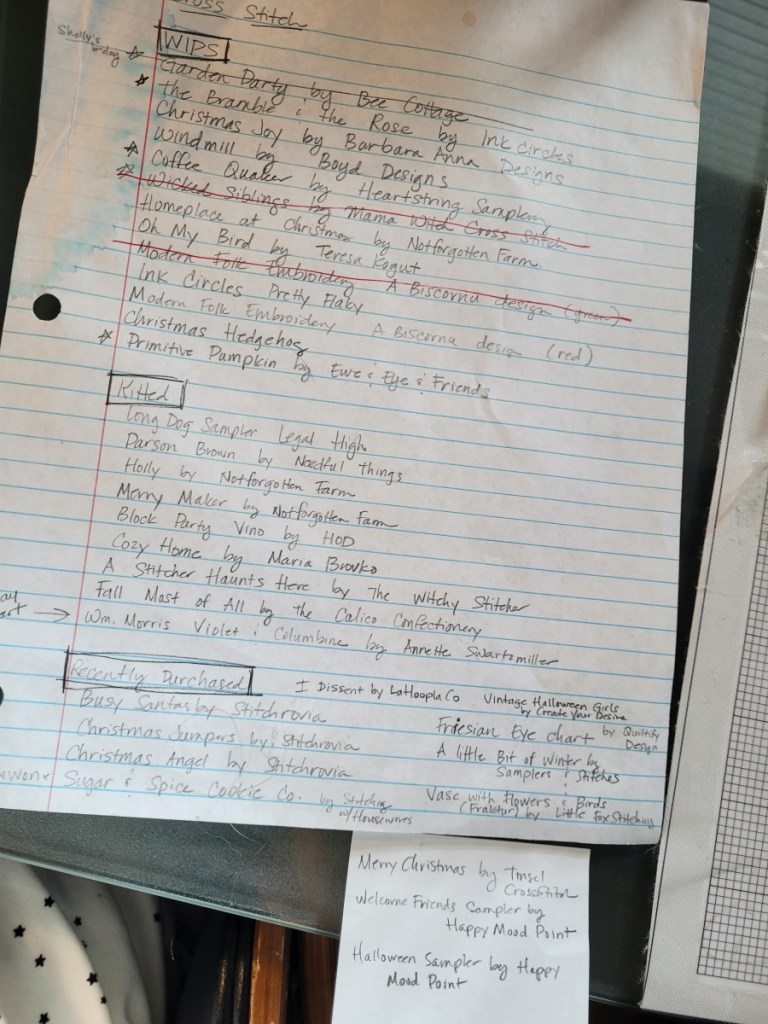 Cross Stitch
WIPS
Shelly's b-day
☆ Garden Party by Bee Cottage
☆ The Bramble & the Rose by Ink Circles
Christmas Joy by Barbara Anna Designs
Windmill by Boyd Designs
☆ Coffee Quaker by Heartstring Samplery
☆ Wicked Siblings by Mama Witch Cross Stitch
Homeplace at Christmas by Notforgotten Farm
Oh My Bird by Teresa Kogut
Modern Folk Embroidery A Biscornu design (green)
Ink Circles Pretty Flaby
Modern Folk Embroidery A Biscornu design (red)
Christmas Hedgehog
☆ Primitive Pumpkin by Ewe & Eye & Friends
Kitted
Long Dog Sampler Legal High
Parson Brown by Needful Things
Holly by Notforgotten Farm
Merry Maker by Notforgotten Farm
Block Party Vino by HOD
Cozy Home by Maria Brovko
A Stitcher Haunts Here by The Witchy Stitcher
Fall Most of All by the Calico Confectionery
→ Wm. Morris Violet & Columbine by Annette Swartzmiller
Recently Purchased
Busy Santas by Stitchrovia
Christmas Jumpers by Stitchrovia
Christmas Angel by Stitchrovia
Sugar & Spice Cookie Co. by Stitching
w/Housewives
I Dissent by LaHoopla Co
Vintage Halloween Girls
by Create Your Desire
Friesian Eye chart by Quiltify
Design
A little Bit of Winter by
Samplers & Stitches
Vase with Flowers & Birds
(Fraktur) by Little Fox Stitching
Merry Christmas by Tinsel
CrossStitch
Welcome Friends Sampler by
Happy Mood Point
Halloween Sampler by Happy
Mood Point